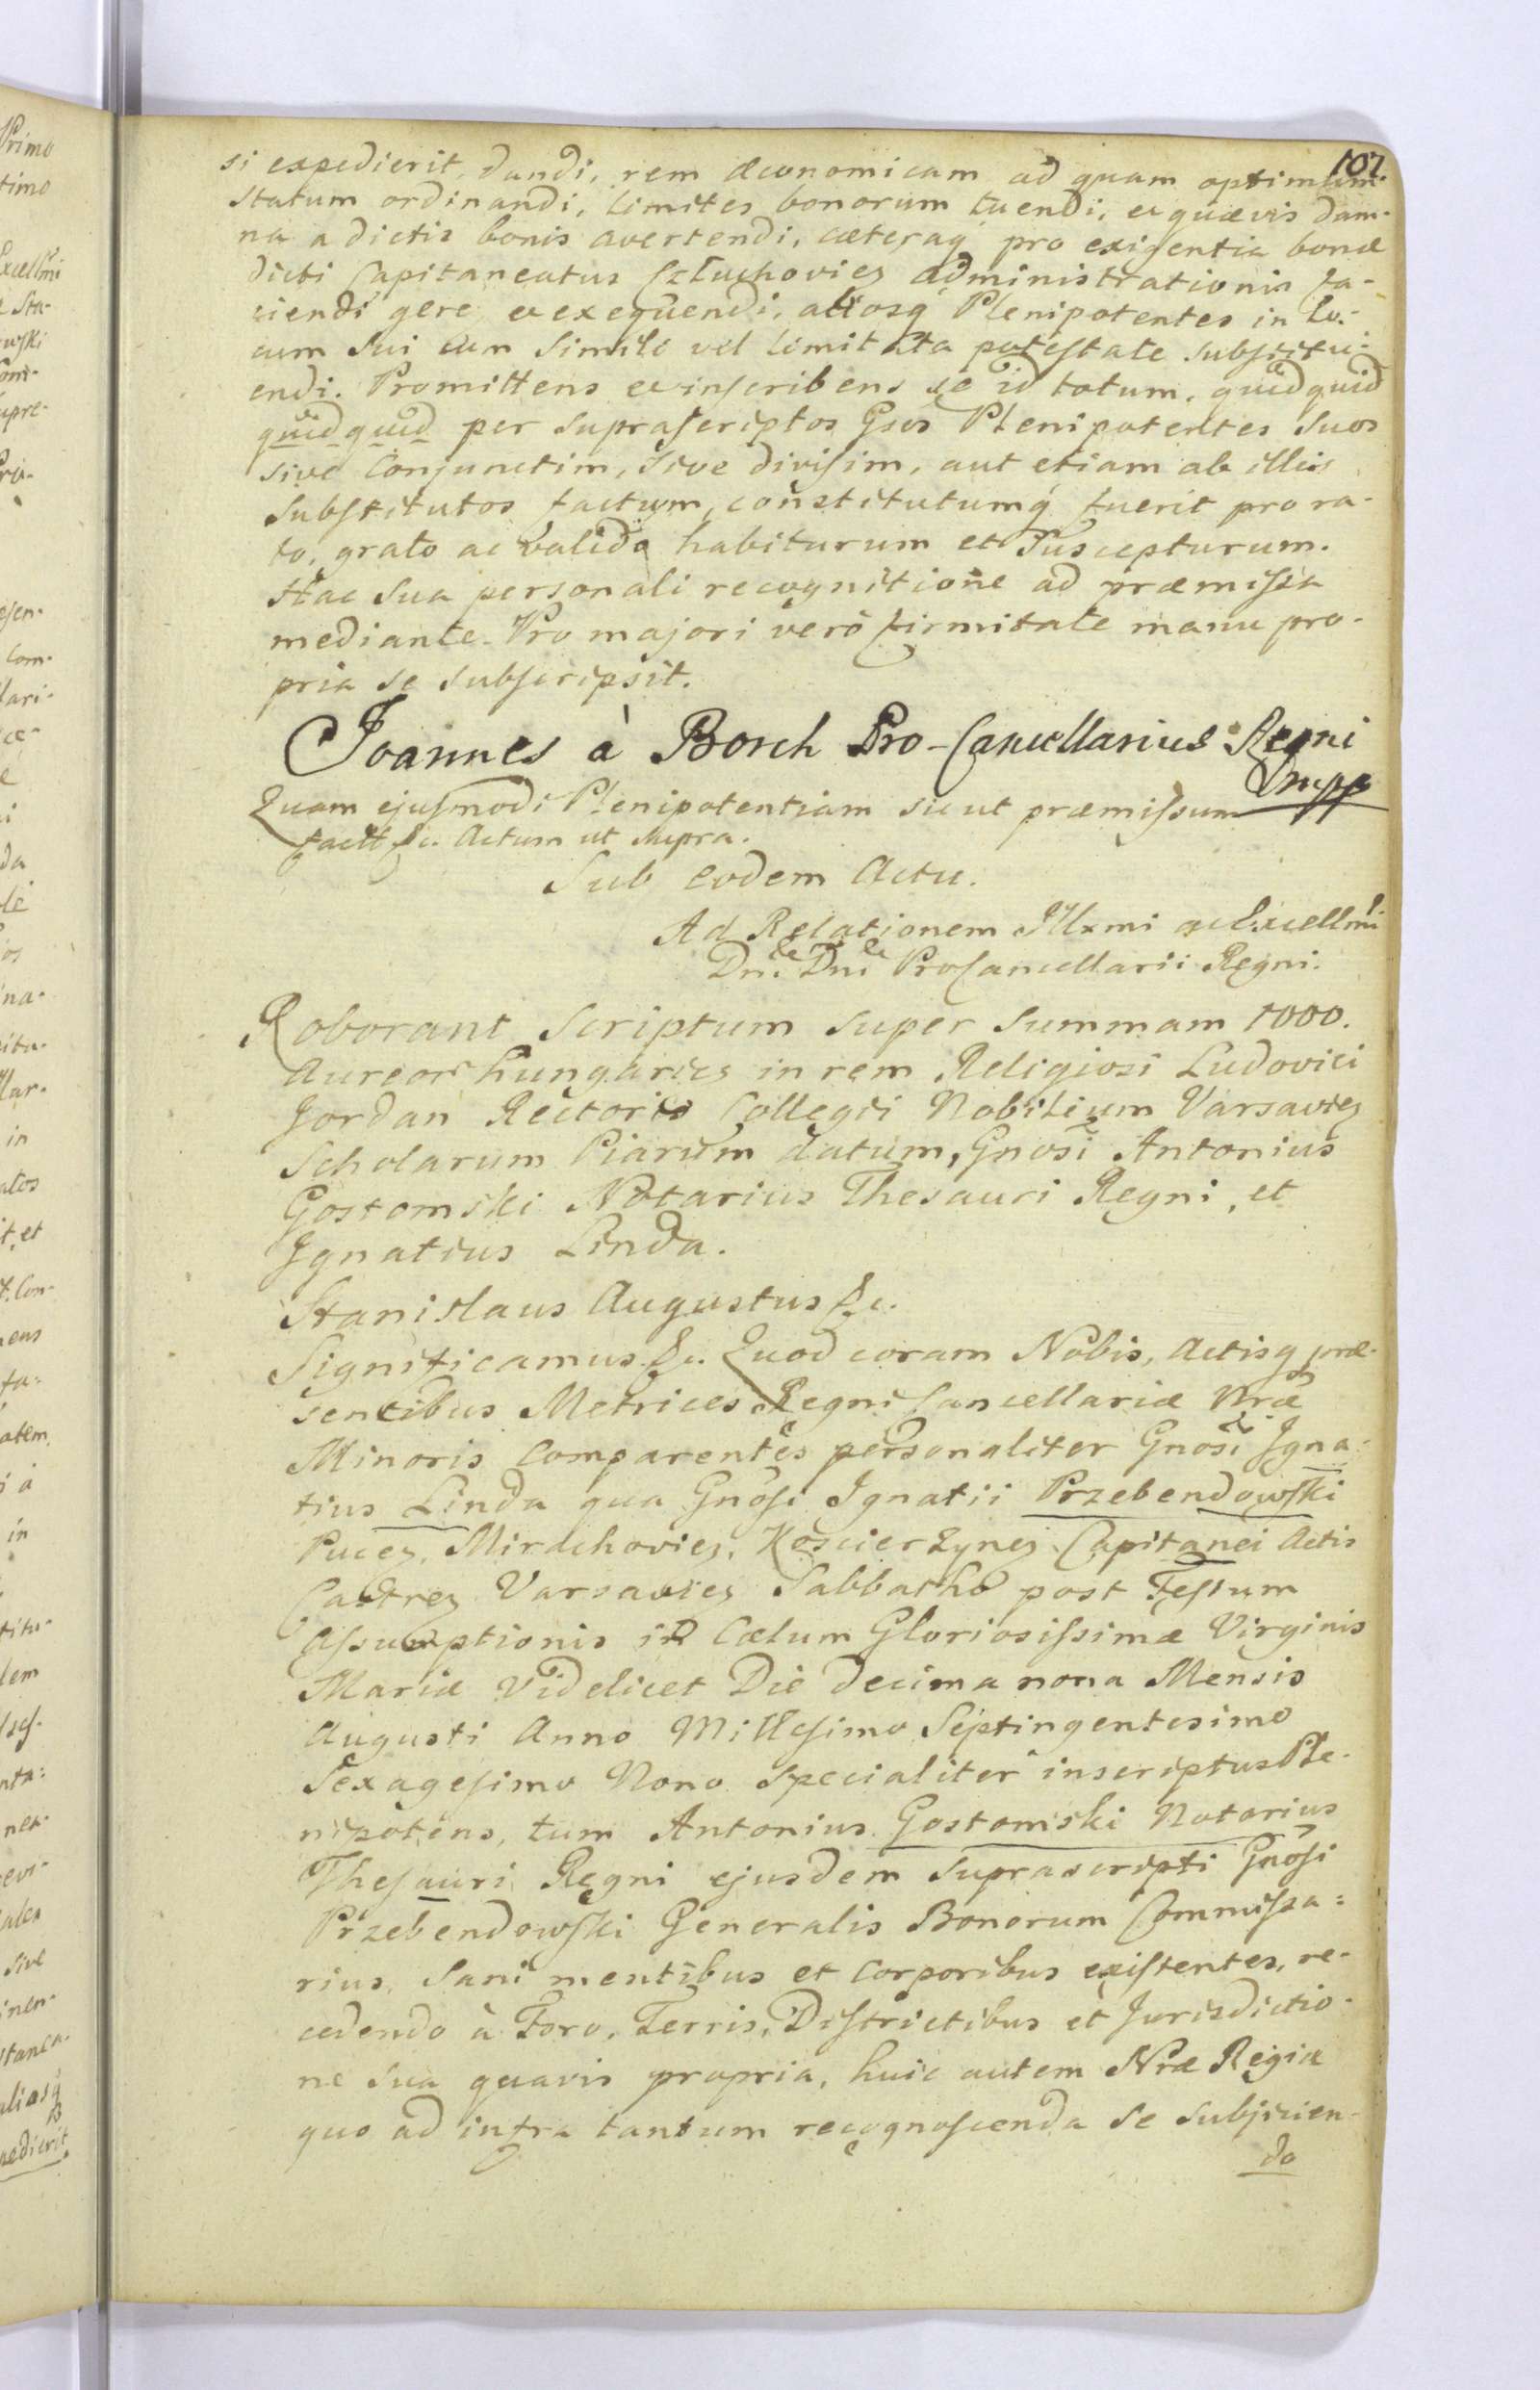 102.
si expedierit, dandi, rem œconomicam ad quam optimum
statum ordinandi, limites bonorum tuendi, et quævis dam-
na a dictis bonis avertendi, cæteraq pro exigentia bonæ
dicti Capitaneatus Człuchovien administrationis fa-
ciendi gere et exequendi, aliosq Plenipotentes in lo-
cum sui cum simili vel limitata potestate substitu-
endi. Promittens et inscribens se id totum, quidquid
quidquid per suprascriptos Gsos Plenipotentes suos
sive conjunctim, sive divisim, aut etiam ab illis
substitutos factum, constitutumq fuerit pro ra-
to, grato ac valido habiturum et suscepturum.
Hac sua personali recognitione ad præmissa
mediante. Pro majori verò firmitate manu pro-
pria se subscripsit.
Joannes à Borch Pro-Cancellarius Regni
mpp
Quam ejusmodi Plenipotentiam sic ut præmissum
Actum ut supra.
Sub eodem Actu.
Ad Relationem Illxmi ac Excellmi
Dni Dni ProCancellarii Regni.
Roborant Scriptum super summam 1000.
Aureor hungaricz in rem Religiosi Ludovici
Jordan Rectoris Collegii Nobilium Varsavien
Scholarum Piarum datum, Gnosi Antonius
Gostomski Notarius Thesauri Regni, et
Ignatius Linda.
Stanislaus Augustus &c.
Significamus &c. Quod coram Nobis, Actisq præ-
sentibus Metrices Regni Cancellariæ Nræ
Minoris Comparentes personaliter Gnosi Igna-
tius Linda qua Gnosi Ignatii Przebendowski
Pucen, Mirachovien, Koscierzynen Capitanei Actis
Castren Varsavien Sabbatho post Festum
Assumptionis in Cælum Gloriosissimæ Virginis
Mariæ videlicet Die decima nona Mensis
Augusti Anno Millesimo Septingentesimo
Sexagesimo Nono specialiter inscriptus Ple-
nipotens, tum Antonius Gostomski Notarius
Thesauri Regni ejusdem suprascripti Gnosi
Przebendowski Generalis Bonorum Commissa=
rius, Sani mentibus et corporibus existentes, re-
cedendo à Foro, Terris, Districtibus et Jurisdictio-
ne sua quavis propria, huic autem Nræ Regiæ
quo ad infra tantum recognoscenda se subjicien-
do